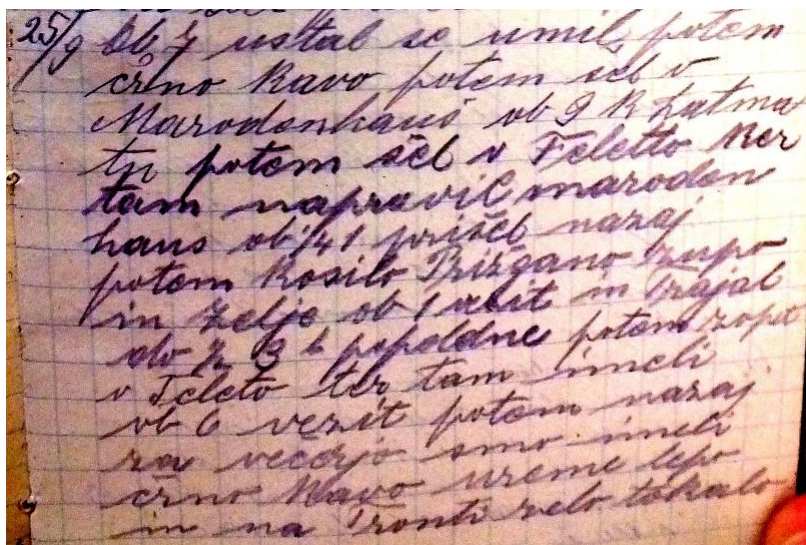 25/9 Ob 7 ustal se umil, potem
črno Kavo potem šel v
Marodenhaus ob 9 k
potem šel v Feletto Ker
tam napravil maroden
haus ob 1/4 1 prišel nazaj
potem Kosilo Prižgano zupo
in zelje ob 1 vezit in trajal
do 1/2 3 h popoldne potem zopet
v Feleto ter tam imeli
ob 6 vezit potem nazaj
za večerjo smo imeli
črno Kavo ureme lepo
in na Fronti zelo tokalo